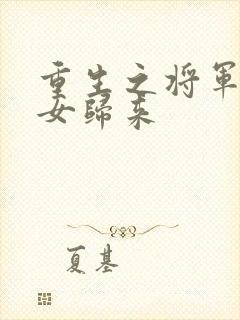 重生之将軍
女歸来
夏基